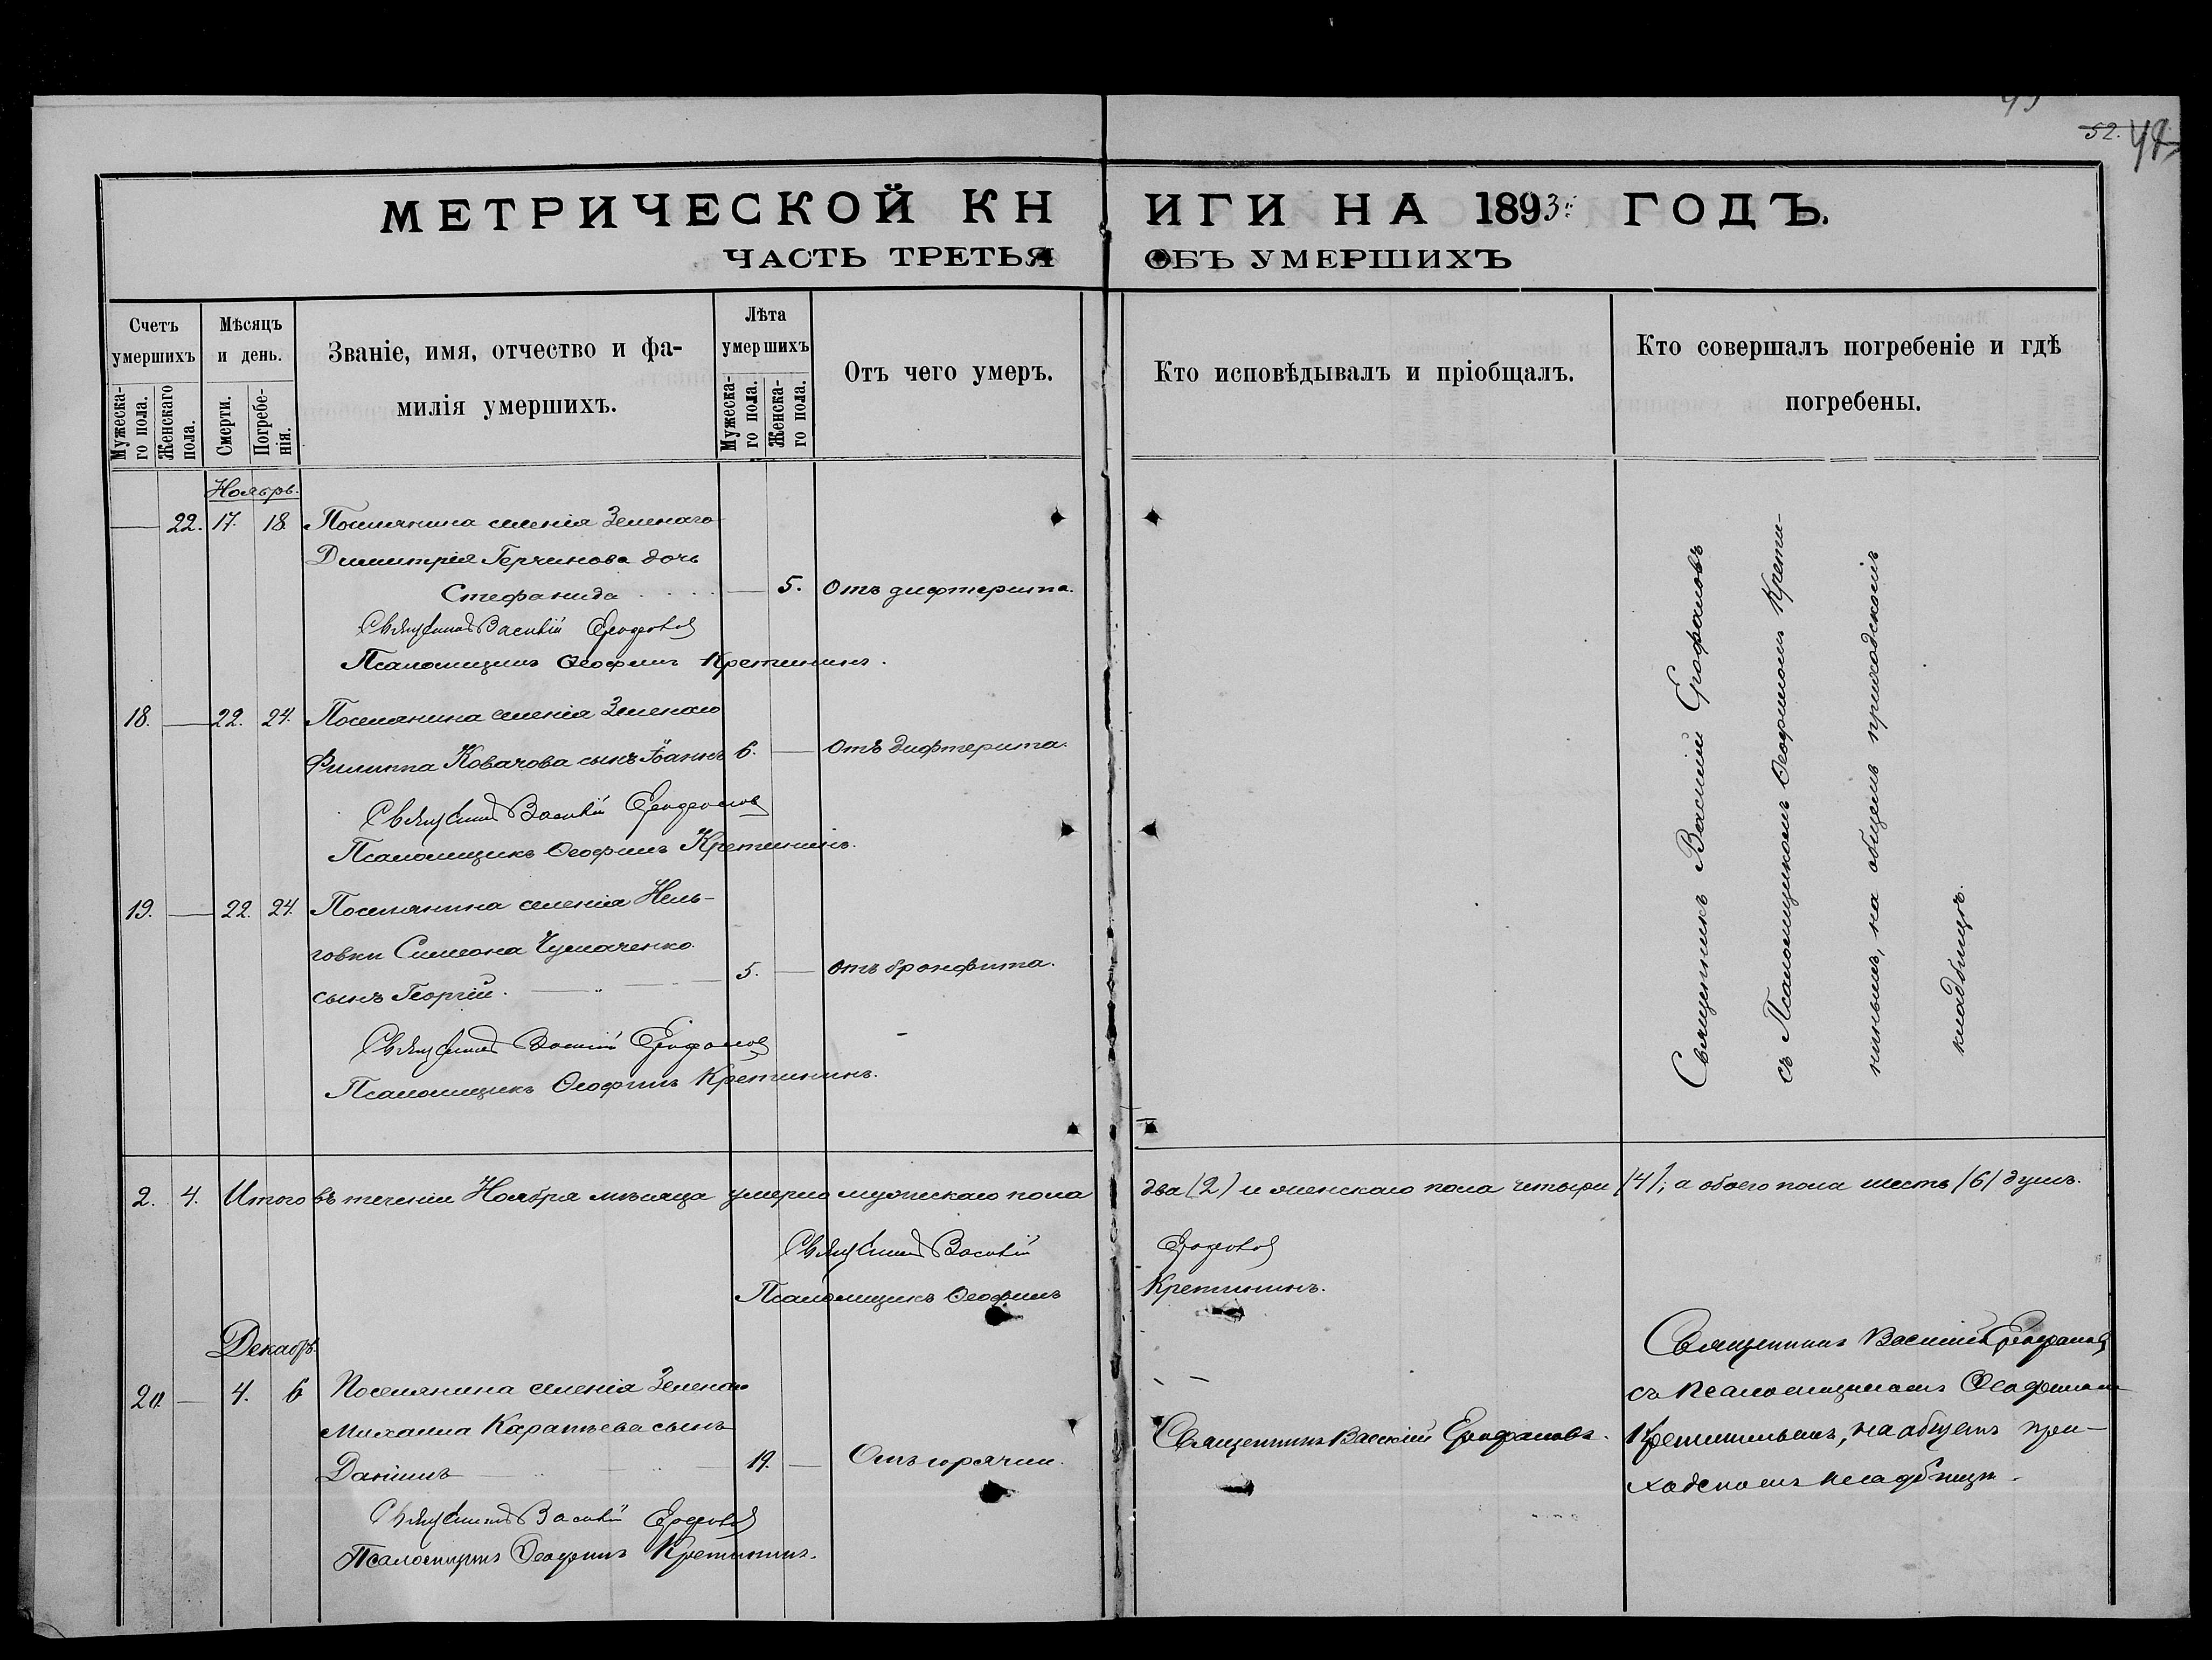 52. 47
МЕТРИЧЕСКОЙ КНИГИ НА 1893й ГОДЪ.
ЧАСТЬ ТРЕТЬЯ ОБЪ УМЕРШИХЪ
Счетъ умершихъ
Мужескаго пола.
Женскаго пола.
Мѣсяцъ и день.
Смерти.
Погребенія.
Званіе, имя, отчество и фа-
милія умершихъ.
Лѣта умершихъ
Мужескаго пола.
Женскаго пола.
Отъ чего умеръ.
Кто исповѣдывалъ и пріобщалъ.
Кто совершалъ погребеніе и гдѣ
погребены.
Ноябрь.
22. 17. 18. Поселянина селенія Зеленаго
Димитрія Герчинова дочь
Стефанида 5. Отъ дифтерита.
Священникъ Василій Ерофаловъ
Псаломщикъ Ѳеофилъ Кретининъ.
18. 22. 24. Поселянина селенія Зеленаго
Филиппа Ковачова сынъ Іоаннъ 6. Отъ дифтерита.
Священникъ Василій Ерофаловъ
Псаломщикъ Ѳеофилъ Кретининъ.
19. 22. 24. Поселянина селенія Нель-
говки Симеона Чумаченко
сынъ Георгій. 5. Отъ бронхита.
Священникъ Василій Ерофаловъ
Псаломщикъ Ѳеофилъ Кретининъ.
Священникъ Василій Ерофаловъ
съ Псаломщикомъ Ѳеофиломъ Крети-
нинымъ, на общемъ приходскомъ
кладбищѣ.
2. 4. Итого въ теченіи Ноября мѣсяца умерло мужескаго пола два (2) и женскаго пола четыре (4); а обоего пола шесть (6) душъ.
Священникъ Василій Ерофаловъ
Псаломщикъ Ѳеофилъ Кретининъ.
Декабрь.
20. 4. 6 Поселянина селенія Зеленаго
Михаила Каратѣева сынъ
Даніилъ 19. Отъ горячки.
Священникъ Василій Ерофаловъ.
Священникъ Василій Ерофаловъ
съ псаломщикомъ Ѳеофиломъ
Кретининымъ, на общемъ при-
ходскомъ кладбищѣ.
Священникъ Василій Ерофаловъ
Псаломщикъ Ѳеофилъ Кретининъ.